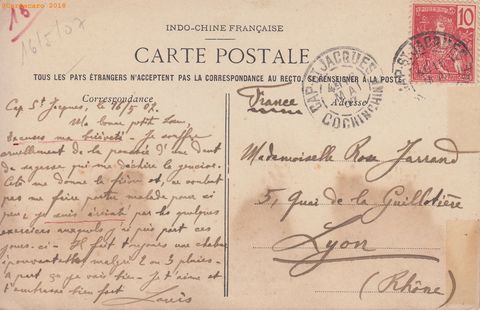 ©Cartacaro 2016
16
16/5/07
INDO-CHINE FRANÇAISE
CARTE POSTALE
TOUS LES PAYS ÉTRANGERS N'ACCEPTENT PAS LA CORRESPONDANCE AU RECTO. SE RENSEIGNER A LA POSTE
10
CAP-ST-JACQUES
MAI
COCHINCHINE
CAP-ST-JACQUES
Correspondance
Adresse
France
Cap St Jacques, le 16/5 07.
Ma bonne petite
Excuses ma brièveté. Je souffre
cruellement de la poussée d'une dent
de sagesse qui me déchire la gencive.
Cela me donne la fièvre et, ne voulant
pas me faire porter malade pour si
peu, je suis éreinté par les quelques
exercices auxquels j'ai pris part ces
jours-ci. Il fait toujours une chaleur
malgré 2 ou 3 pluies. A
part ça je vais bien. Je t'aime et
t'embrasse bien fort
Louis
Mademoiselle Rose Jarrand
5, Quai de la Guillotière
Lyon
(Rhône)